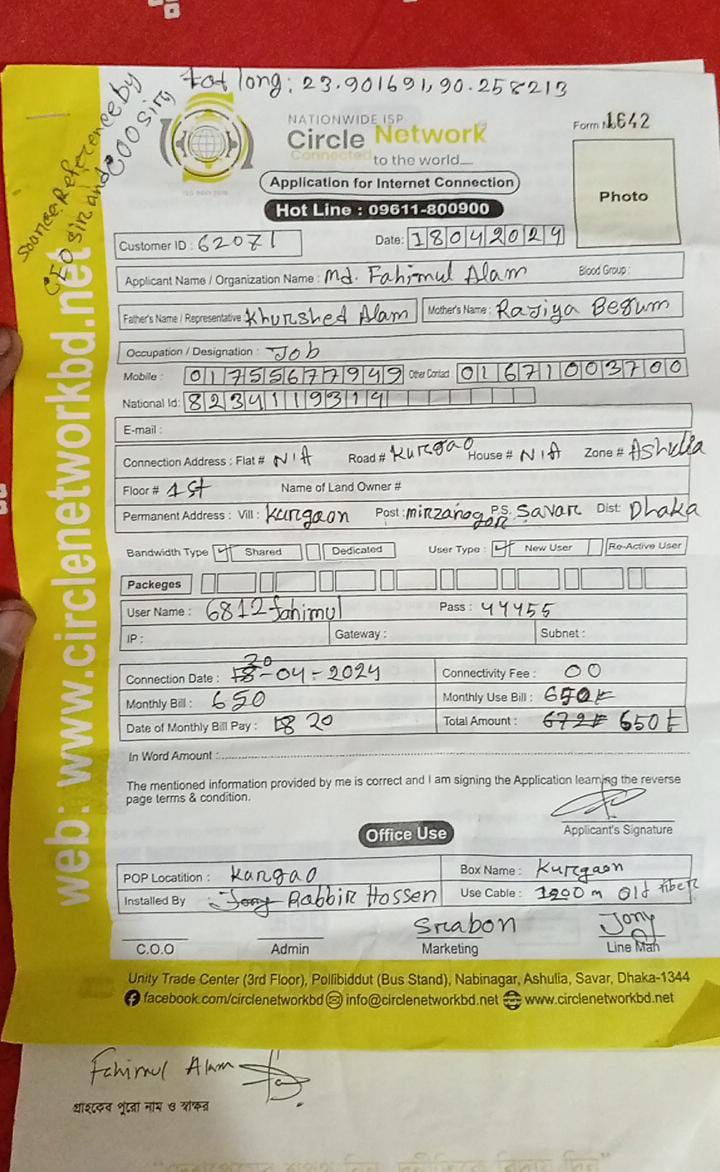 Lat long: 23.901691, 90.258213
Source Reference by
CEO sir and COO sir
NATIONWIDE ISP
Circle Network
Connected to the world....
Form N 1642
Photo
Application for Internet Connection
Hot Line : 09611-800900
Customer ID : 62071 Date: 18042024
Applicant Name / Organization Name : Md. Fahimul Alam Blood Group:
Father's Name / Representative Khurshed Alam Mother's Name : Raziya Begum
Occupation / Designation : Job
Mobile : 01755677949 Other Contact 01671003700
National Id: 8234119314
E-mail :
Connection Address : Flat # N/A Road # Kurgao House # N/A Zone # Ashulia
Floor # 1st Name of Land Owner #
Permanent Address : Vill : Kurgaon Post : mirzanagar P.S. Savar Dist: Dhaka
Bandwidth Type Shared Dedicated User Type : New User Re-Active User
Packeges
User Name : 6812fahimul Pass : 44455
IP : Gateway : Subnet :
Connection Date : 18 20-04-2024 Connectivity Fee : 00
Monthly Bill : 650 Monthly Use Bill : 650৳
Date of Monthly Bill Pay : 18 20 Total Amount : 672৳ 650৳
In Word Amount :
The mentioned information provided by me is correct and I am signing the Application learning the reverse
page terms & condition.
Applicant's Signature
Office Use
POP Locatition : Kurgao Box Name : Kurgaon
Installed By Jony Rabbir Hossen Use Cable : 1200 m Old fiber
Srabon Jony
C.O.O Admin Marketing Line Man
Unity Trade Center (3rd Floor), Pollibiddut (Bus Stand), Nabinagar, Ashulia, Savar, Dhaka-1344
facebook.com/circlenetworkbd info@circlenetworkbd.net www.circlenetworkbd.net
web: www.circlenetworkbd.net
Fahimul Alam
গ্রাহকের পুরো নাম ও স্বাক্ষর